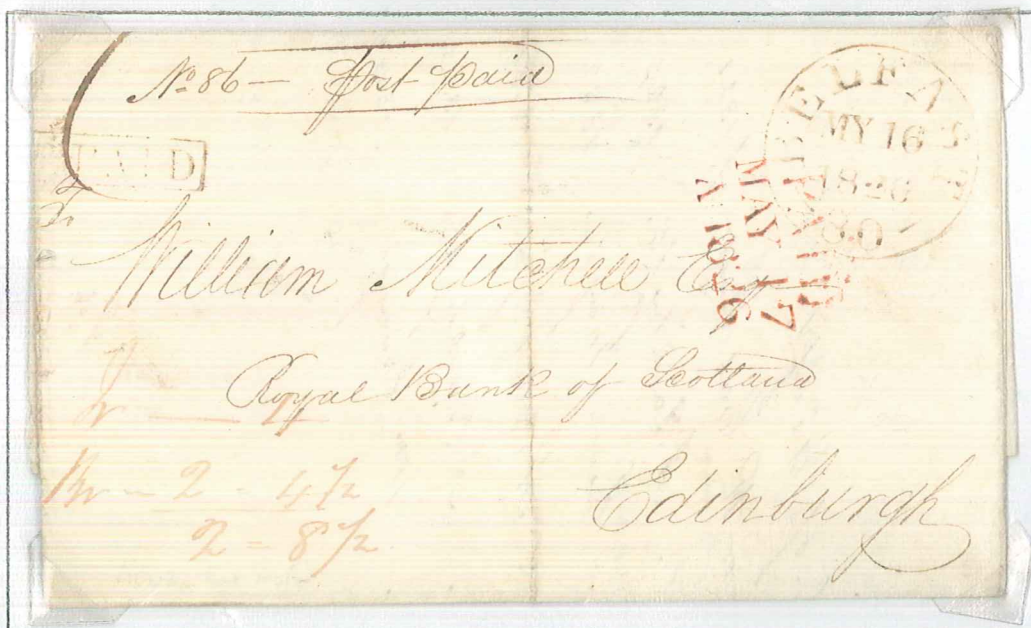 No. 86 — Post Paid
PAID
BELFAST
MY 16
1826
80
MAY
17
1826
William Mitchell Esq
Royal Bank of Scotland
Edinburgh
Br - 2 - 4 1/2
2 - 8 1/2